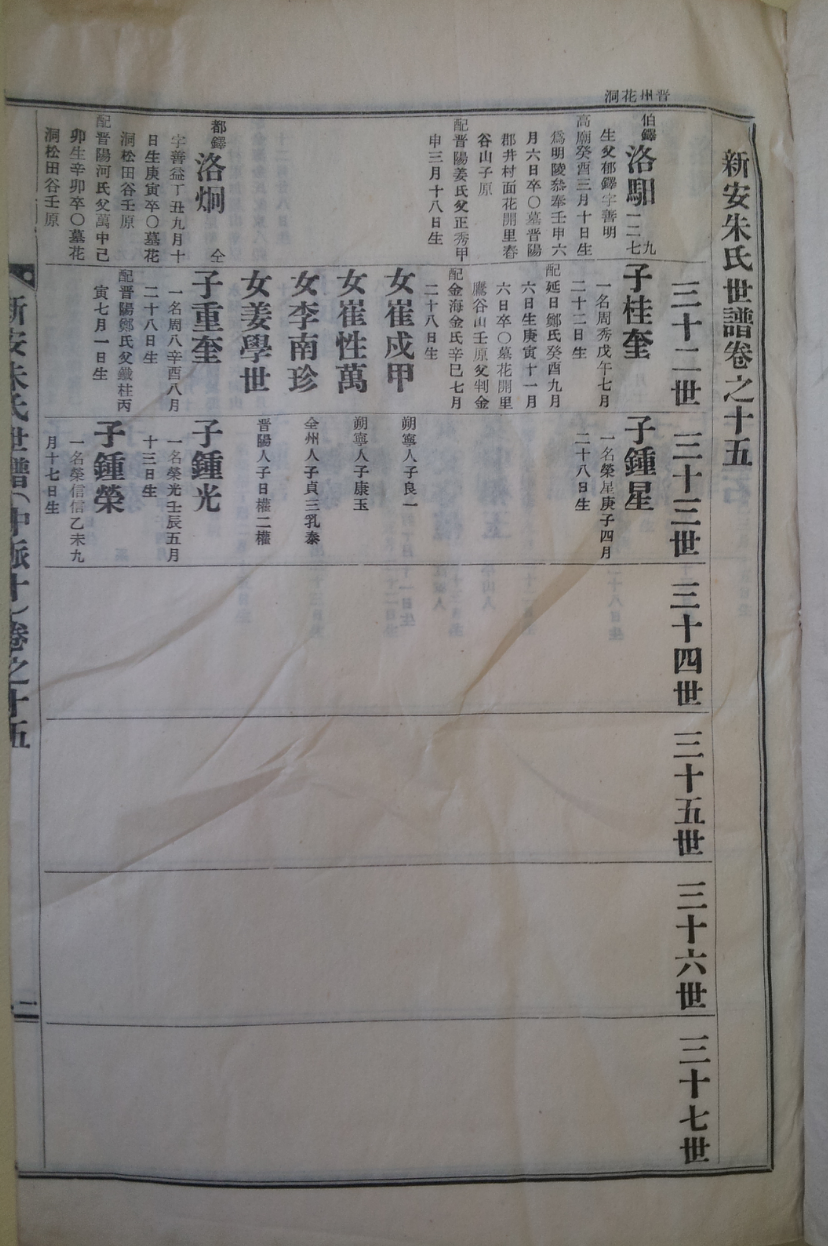 晋州花洞
新安朱氏世譜卷之十五
三十二世
三十三世
三十四世
三十五世
三十六世
三十七世
伯鐸
洛馹
一二七
九
生父郁鐸字善明
高廟癸酉三月十日生
爲明陵叅奉壬申六
月六日卒〇墓晋陽
郡井村面花開里春
谷山子原
配晋陽姜氏父正秀甲
申三月十八日生
都鐸
洛炯
仝
字善益丁丑九月十
日生庚寅卒〇墓花
洞松田谷壬原
配晋陽河氏父萬中己
卯生辛卯卒〇墓花
洞松田谷壬原
子桂奎
一名周秀戊午七月
二十二日生
配延日鄭氏癸酉九月
六日生庚寅十一月
六日卒〇墓花開里
鷹谷山壬原父判金
配金海金氏辛巳七月
二十八日生
女崔成甲
女崔性萬
女李南珍
女姜學世
子重奎
一名周八辛酉八月
二十八日生
配晋陽鄭氏父鐵柱丙
寅七月一日生
子鍾星
一名榮星庚子四月
二十八日生
朔寧人子良一
朔寧人子康玉
全州人子貞三乳泰
晋陽人子日權二權
子鍾光
一名榮光壬辰五月
十三日生
子鍾榮
一名榮信信乙未九
月十七日生
新安朱氏世譜(中派十)卷之十五
二